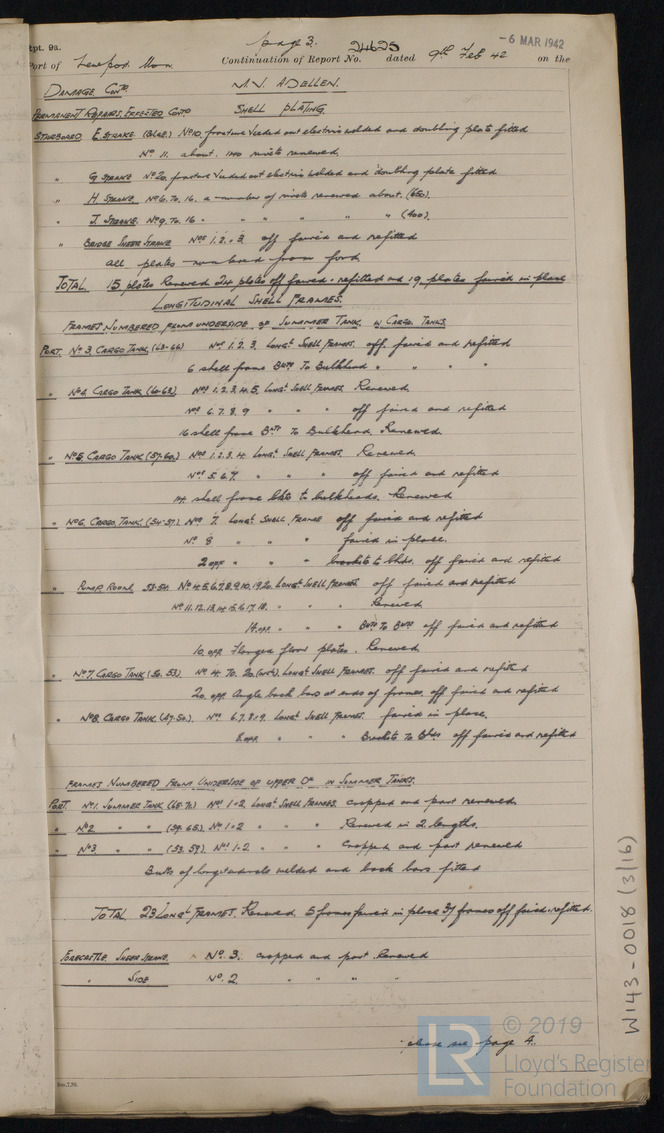 Rpt. 9a. page 3. -6 MAR 1942
Port of Newport Mon. Continuation of Report No. 24625 dated 9th Feb 42 on the
DAMAGE CONTD M.V. ADELLEN.
PERMANENT REPAIRS EFFECTED CONTD SHELL PLATING.
STARBOARD E STRAKE (BILGE) No 10. fracture Veeded out electric welded and doubling plate fitted
No 11. about 1140 rivets renewed.
" G STRAKE No 20. fracture Veeded out electric welded and doubling plate fitted
" H STRAKE Nos 6. TO. 16. a number of rivets renewed about. (650).
" J STRAKE. Nos 9. TO. 16 " " " " " " (400).
" BRIDGE SHEER STRAKE Nos 1. 2. & 3. off faired and refitted
all plates numbered from ford
TOTAL 15 plates Renewed 24 plates off faired & refitted and 19 plates faired in place
LONGITUDINAL SHELL FRAMES.
FRAMES NUMBERED FROM UNDERSIDE OF SUMMER TANK IN CARGO TANKS.
PORT. No 3. CARGO TANK (63-66) Nos 1. 2. 3. Longl SHELL FRAMES. off faired and refitted
6 shell frame Bkts To Bulkhead " " " "
" No 4. CARGO TANK (60-63). Nos 1. 2. 3. 4. 5. Longl SHELL FRAMES Renewed.
Nos 6. 7. 8. 9 " " " off faired and refitted
16 shell frame Bkts To Bulkhead. Renewed.
" No 5. CARGO TANK (57-60.) Nos 1. 2. 3. 4. Longl SHELL FRAMES. Renewed.
Nos 5. 6. 7. " " " off faired and refitted
14. shell frame bkts to bulkheads. Renewed
" No 6. CARGO TANK. (54-57.) No 7. Longl SHELL FRAME off faired and refitted
No 8 " " " faired in place.
2 off " " " brackets to bhds. off faired and refitted
" PUMP ROOM 53-54. No 4.5.6.7.8.9.10.19.20. Longl SHELL FRAMES off faired and refitted
No 11. 12. 13. 14. 15. 16. 17. 18. " " " Renewed
14. off. " " " Bkts To Bhds off faired and refitted
10. off flanged floor plates. Renewed
" No 7. CARGO TANK (50. 53.) No 4. TO. 20. (incl). Longl SHELL FRAMES. off faired and refitted
20. off Angle back bars at ends of frames. off faired and refitted
" No 8. CARGO TANK. (47-50.) Nos 6. 7. 8. & 9. Longl SHELL FRAMES. faired in place.
8. off. " " " Brackets To Bhds off faired and refitted
FRAMES NUMBERED FROM UNDERSIDE OF UPPER DK IN SUMMER TANKS.
PORT. No 1. SUMMER TANK (65-71.) Nos 1 & 2 Longl SHELL FRAMES. cropped and part renewed.
" No 2 " " (59. 65). Nos 1 & 2 " " " Renewed in 2 lengths.
" No 3 " " (53. 59). Nos 1 & 2 " " " cropped and part renewed
Butts of longitudinals welded and back bars fitted
TOTAL 23 LONGL FRAMES. Renewed. 5 frames faired in place 37 frames off faired & refitted.
FORECASTLE. SHEER STRAKE. No. 3. cropped and part Renewed
" SIDE No. 2. " " " "
please see page 4.
W143-0018 (3/16)
LR © 2019
Lloyd's Register
Foundation